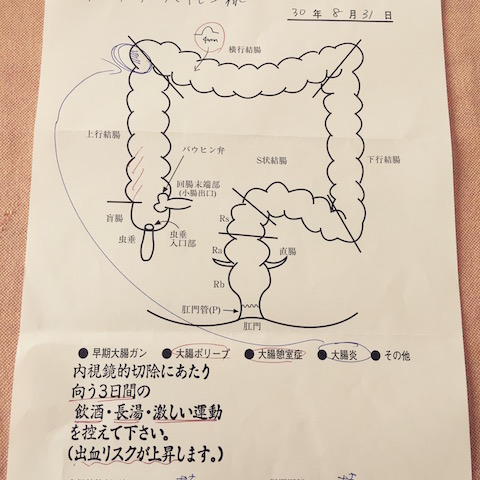 30年8月31日
4mm
横行結腸
上行結腸
バウヒン弁
S状結腸
下行結腸
回腸末端部
(小腸出口)
盲腸
Rs
虫垂
虫垂
入口部
Ra
直腸
Rb
肛門管(P)
肛門
●早期大腸ガン ●大腸ポリープ ●大腸憩室症 ●大腸炎 ●その他
内視鏡的切除にあたり
向う3日間の
飲酒・長湯・激しい運動
を控えて下さい。
(出血リスクが上昇します。)